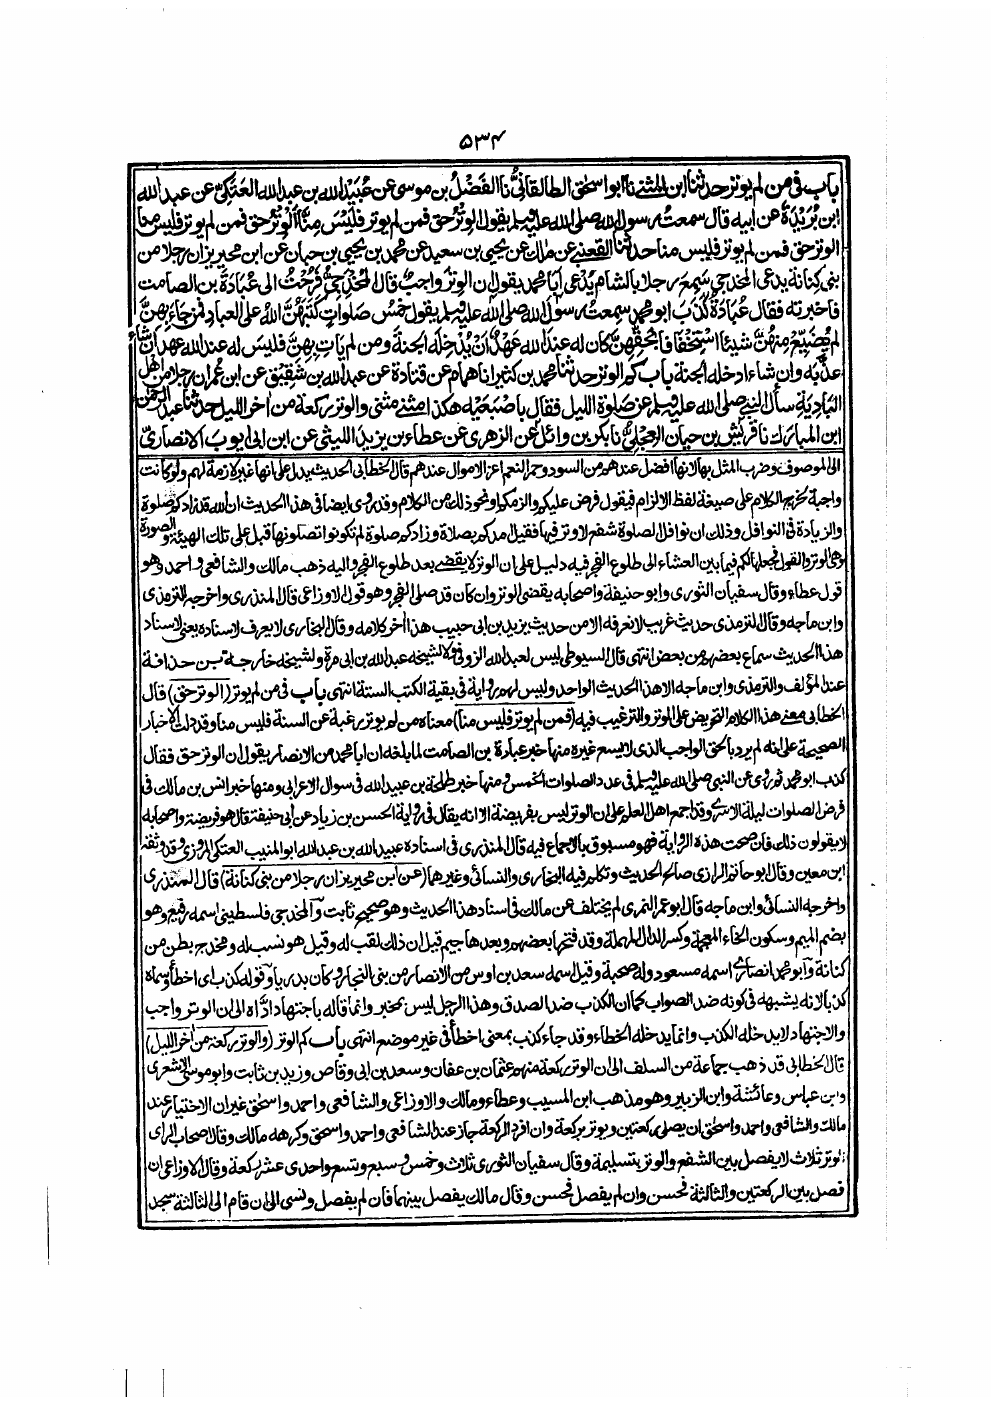 ۵۳۴
باب فى من لم يوتر حدثنا ابن المثنى نا ابو اسحٰق الطالقانىُّ نا الفَضْلُ بن موسى عن عُبَيْدِ الله بن عبد الله العَتَكىِّ عن عبد الله
ابن بُرَيْدَةَ عن ابيه قال سمعت رسول الله صلى الله عليه وسلم يقول الوترُ حق فمن لم يوتر فليْسَ مِنَّا الْوِتْرُ حق فمن لم يوتر فليس منا
الوتر حق فمن لم يوتر فليس منا حدثنا القعنبى عن مالك عن يحيى بن سعيد عن محمد بن يحيى بن حبان عن ابن محيريز ان رجلا من
بنى كنانة يدعى المخدجى سَمِعَ رجلا بالشام يُدْعى ابا محمد يقول ان الوترَ واجبٌ قال المُخْدَجِىُّ فرُحْتُ الى عُبَادَةَ بن الصامت
فاخبرته فقال عُبادَةُ كَذَبَ ابو محمد سمعت رسول الله صلى الله عليه وسلم يقول خمْسُ صَلَواتٍ كَتَبَهُنَّ اللهُ على العباد فمن جاءَ بِهِنَّ
لم يُضَيِّعْ مِنْهُنَّ شيئا اسْتِخْفافا بحَقِّهِنَّ كان له عند الله عَهْدٌ اَنْ يُدْخِلَهُ الجنةَ ومن لم يَاتِ بِهِنَّ فليس له عند الله عهدٌ ان شاءَ
عذَّبه وان شاء ادخله الجنة باب كم الوتر حدثنا محمد بن كثير انا همام عن قتادة عن عبد الله بن شَقِيْقٍ عن ابن عمران رجلا من اهل
البَادِيَةِ سأل النبى صلى الله عليه وسلم عن صلوة الليل فقال باصْبَعَيْهِ هكذا مثنى مثنى والوتر ركعة من اٰخر الليل حدثنا عبد الرحمٰن
ابن المبارك نا قريش بن حيان العِجْلىُّ نا بكر بن وائل عن الزهرى عن عطاء بن يزيد الليثى عن ابى ايوب الانصارىِّ
الى الموصوف وضرب المثل بها لانها افضل عندهم من السود وحمر النعم اعز الاموال عندهم قال الخطابى الحديث يدل على انها غير لازمة لهم ولو كانت
واجبة لخرج الكلام على صيغة لفظ الالزام فيقول فرض عليكم والزمكم او نحو ذلك من الكلام وقد روى ايضا فى هذا الحديث ان الله قد زادكم صلوة
والزيادة فى النوافل وذلك ان نوافل الصلوة شفع لا وتر فيها فقيل امدكم بصلاة وزادكم صلوة لم تكونوا تصلونها قبل على تلك الهيئة والصورة
وهى الوتر والقول فجعلها لكم فيما بين العشاء الى طلوع الفجر فيه دليل على ان الوتر لا يقضى بعد طلوع الفجر واليه ذهب مالك والشافعى واحمد وهو
قول عطاء وقال سفيان الثورى وابو حنيفة واصحابه يقضى الوتر وان كان قد صلى الفجر وهو قول الاوزاعى قال المنذرى واخرجه الترمذى
وابن ماجه وقال الترمذى حديث غريب لا نعرفه الا من حديث يزيد بن ابى حبيب هذا اٰخر كلامه وقال البخارى لا يعرف لاسناده يعنى لاسناد
هذا الحديث سماع بعضهم من بعض انتهى قال السيوطى ليس لعبد الله الزوفى ولا لشيخه عبد الله بن ابى مرة ولشيخه خارجة بن حذافة
عند المؤلف والترمذى وابن ماجه الا هذا الحديث الواحد وليس لهم رواية فى بقية الكتب الستة انتهى باب فى من لم يوتر (الوتر حق) قال
الخطابى معنى هذا الكلام التحريض على الوتر والترغيب فيه (فمن لم يوتر فليس منا) معناه من لم يوتر رغبة عن السنة فليس منا وقد دلت الاخبار
الصحيحة على انه لم يرد بالحق الواجب الذى لا يسع غيره منها خبر عبادة بن الصامت لما بلغه ان ابا محمد من الانصار يقول ان الوتر حق فقال
كذب ابو محمد ثم روى عن النبى صلى الله عليه وسلم فى عدد الصلوات الخمس ومنها خبر طلحة بن عبيد الله فى سوال الاعرابى ومنها خبر انس بن مالك فى
فرض الصلوات ليلة الاسرى وقد اجمع اهل العلم على ان الوتر ليس بفريضة الا انه يقال فى رواية الحسن بن زياد عن ابى حنيفة قال هو فريضة واصحابه
لا يقولون ذلك فان صحت هذه الرواية فهو مسبوق بالاجماع فيه قال المنذرى فى اسناده عبيد الله بن عبد الله ابو المنيب العتكى المروزى وقد وثقه
ابن معين وقال ابو حاتم الرازى صالح الحديث وتكلم فيه البخارى والنسائى وغيرهما (عن ابن محيريز ان رجلا من بنى كنانة) قال المنذرى
واخرجه النسائى وابن ماجه قال ابو عمر النمرى لم يختلف عن مالك فى اسناد هذا الحديث وهو صحيح ثابت والمخدجى فلسطينى اسمه رفيع وهو
بضم الميم وسكون الخاء المعجمة وكسر الدال المهملة وقد فتحها بعضهم وبعدها جيم قيل ان ذلك لقب له وقيل هو نسب له ومخدج بطن من
كنانة وابو محمد انصارى اسمه مسعود وله صحبة وقيل اسمه سعد بن اوس من الانصار من بنى النجار وكان بدريا وقوله كذب اى اخطأ وسماه
كذبا لانه يشبهه فى كونه ضد الصواب كما ان الكذب ضد الصدق وهذا الرجل ليس بمخبر وانما قاله باجتهاد اداه الى ان الوتر واجب
والاجتهاد لا يدخله الكذب وانما يدخله الخطاء وقد جاء كذب بمعنى اخطأ فى غير موضع انتهى باب كم الوتر (والوتر ركعة من اٰخر الليل)
قال الخطابى قد ذهب جماعة من السلف الى ان الوتر ركعة منهم عثمان بن عفان وسعد بن ابى وقاص وزيد بن ثابت وابو موسى الاشعرى
وابن عباس وعائشة وابن الزبير وهو مذهب ابن المسيب وعطاء ومالك والاوزاعى والشافعى واحمد واسحٰق غير ان الاختيار عند
مالك والشافعى واحمد واسحٰق ان يصلى ركعتين ويوتر بركعة وان افرد الركعة جاز عند الشافعى واحمد واسحٰق وكرهه مالك وقال اصحاب الراى
الوتر ثلاث لا يفصل بين الشفع والوتر بتسليمة وقال سفيان الثورى ثلاث وخمس وسبع وتسع واحدى عشر ركعة وقال الاوزاعى ان
فصل بين الركعتين والثالثة فحسن وان لم يفصل فحسن وقال مالك يفصل بينهما فان لم يفصل ونسى الى ان قام الى الثالثة سجد